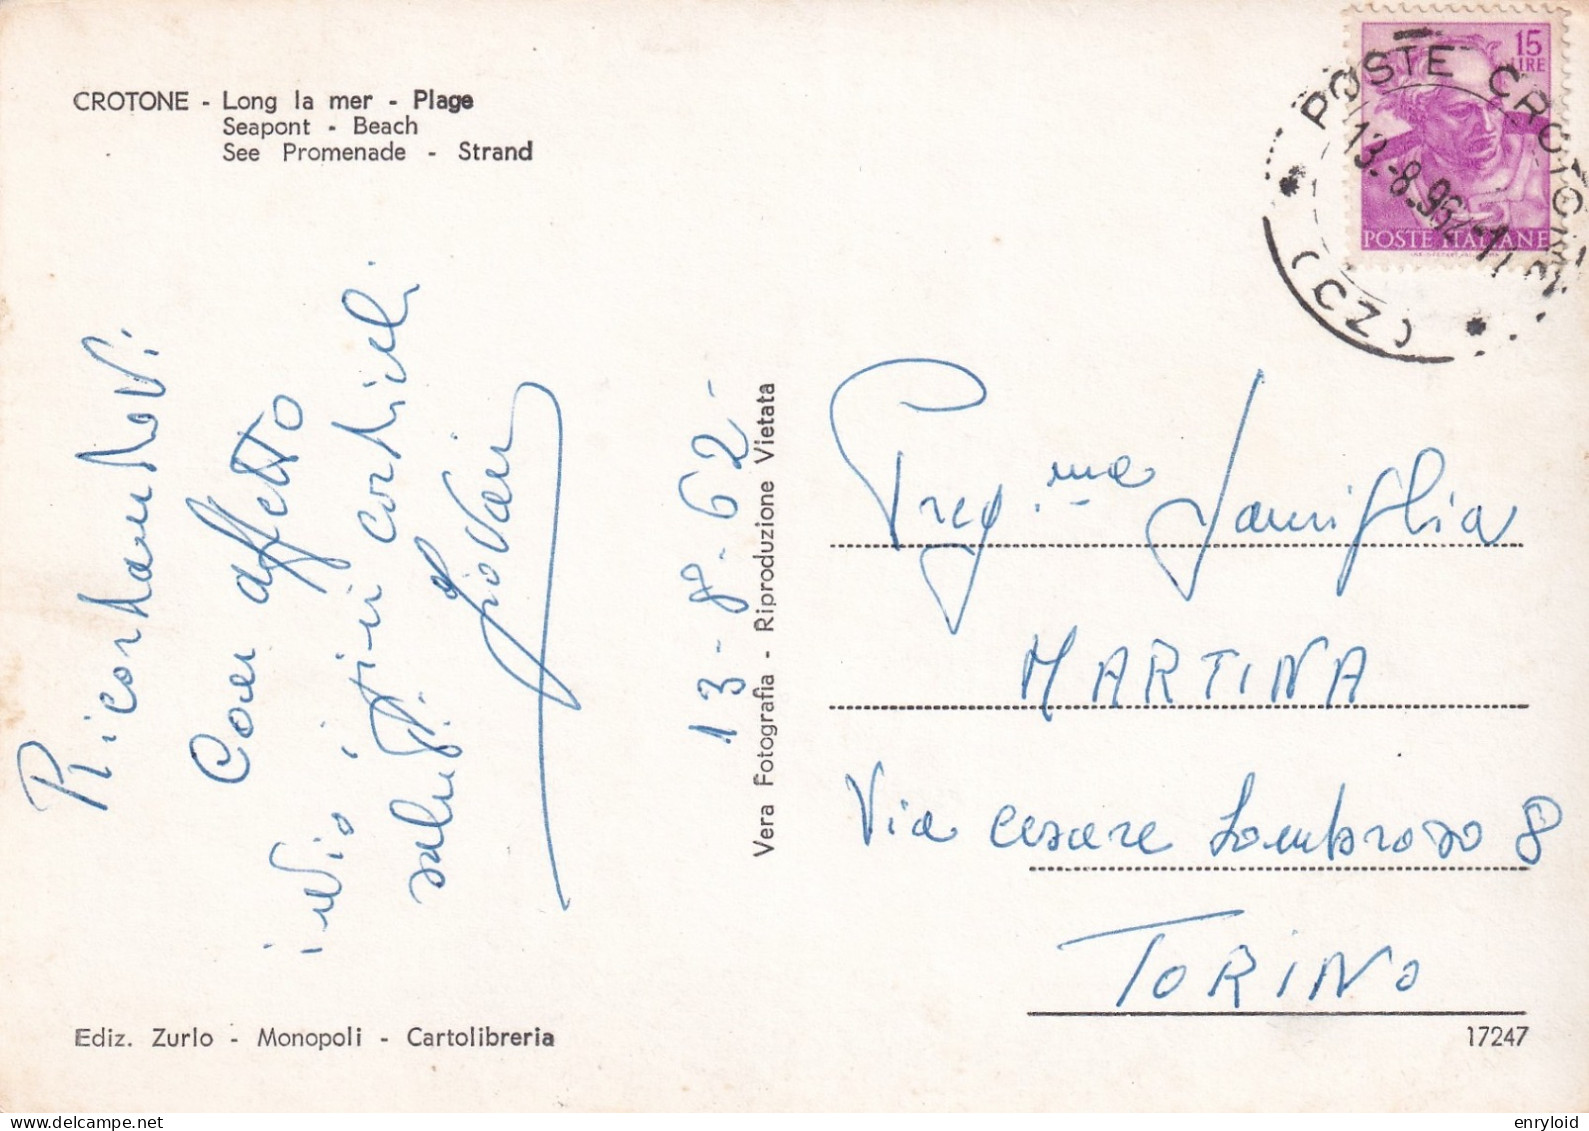 CROTONE - Long la mer - Plage
Seapont - Beach
See Promenade - Strand
15
LIRE
POSTE ITALIANE
POSTE CROTONE
13.-8.962-17
(CZ)
Ricordandovi
Con affetto
invio i
più cordiali
saluti.
Giovanni
13-8-62-
Vera Fotografia - Riproduzione Vietata
Preg.ma Famiglia
MARTINA
Via Cesare Lombroso 8
TORINO
Ediz. Zurlo - Monopoli - Cartolibreria
17247
delcampe.net
enryloid